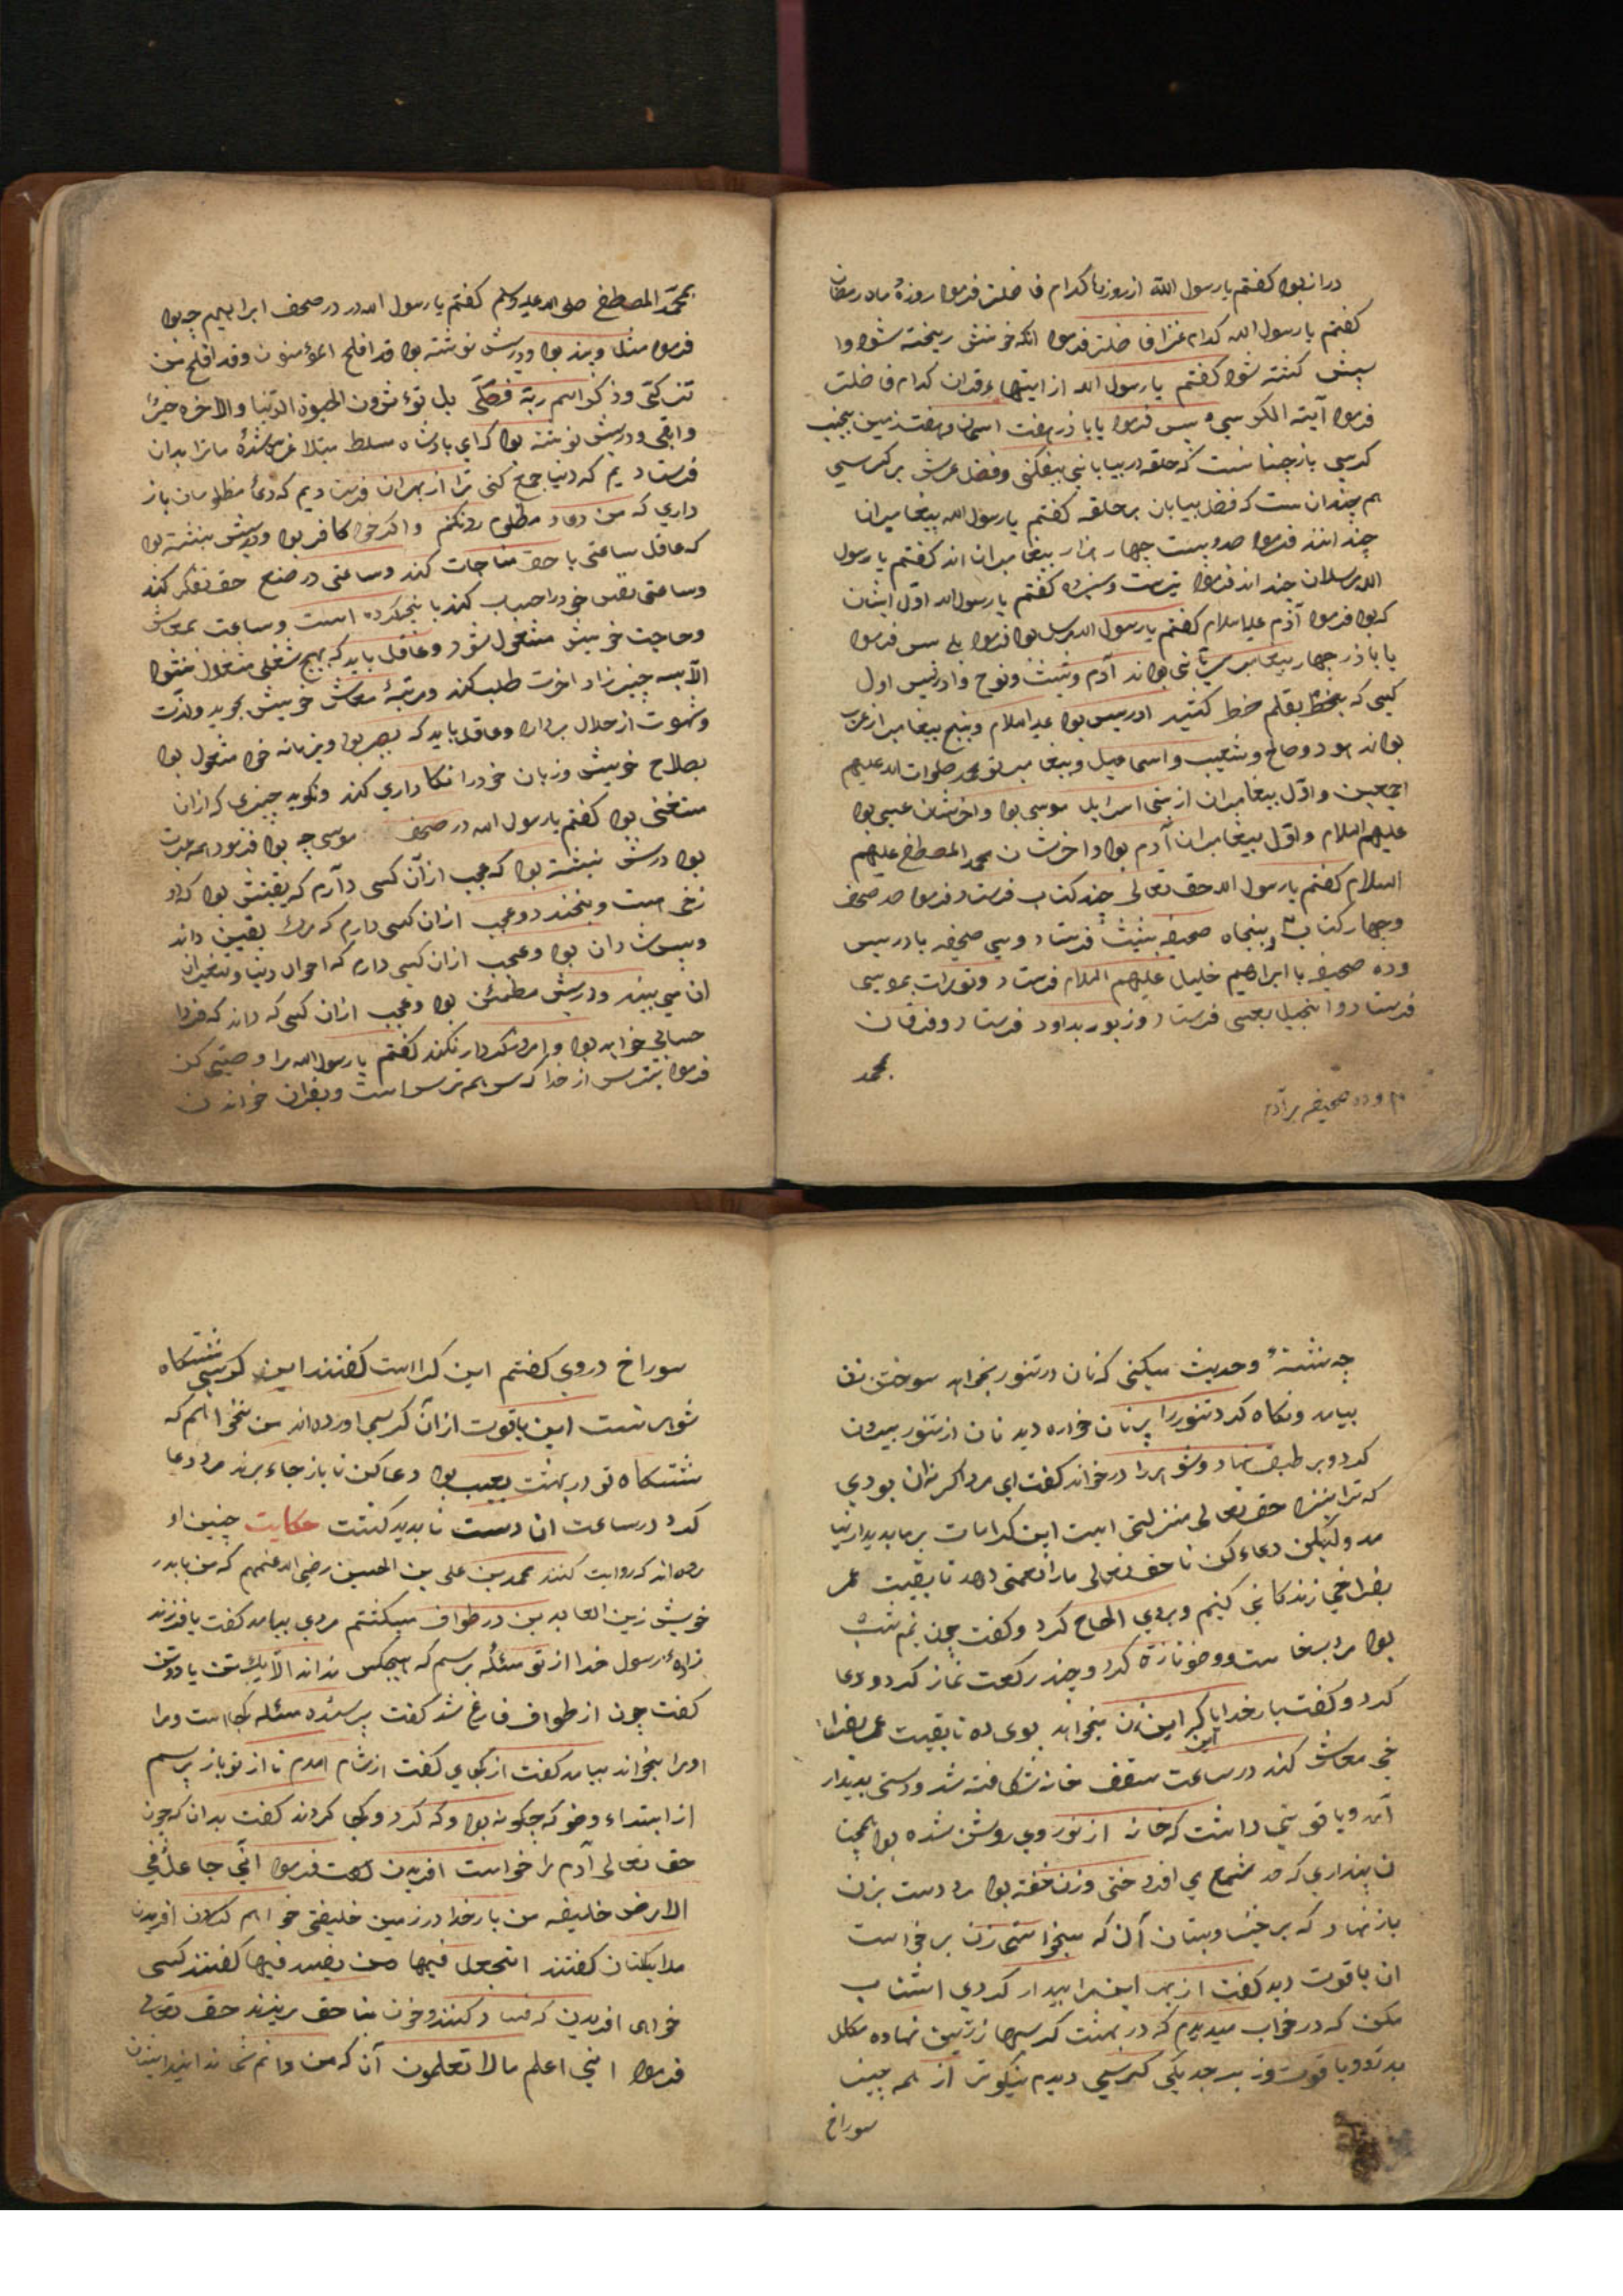 دراز بود کفتم یا رسول الله از روزها کدام فاضلتر فرمود روزهٔ ماه رمضان
کفتم یا رسول الله کدام غزا فاضلتر فرمود انکه خونش ریخته شود و
کشته شود کفتم یا رسول الله از ایتهاء قران کدام فاضلتر
فرمود آیته الکرسی پس فرمود یا باذر هفت اسمان و هفت زمین بجنب
کرسی بازجنانست که حلقه در بیابانی بیفکنی و فضل عرش بر کرسی
هم جندان ست که فضل بیابان بر حلقه کفتم یا رسول الله بیغامبران
چند اند فرمود صد و بیست جهار هزار بیغامبران اند کفتم یا رسول
الله مرسلان جند اند فرمود سیصد و سیزده کفتم یا رسول الله اول ایشان
که بود فرمود آدم علیه السلام کفتم یا رسول الله مرسل بود فرمود بلی پس فرمود
یا باذر جهار بیغامبر سریانی بودند آدم و شیث و نوح و ادریس اول
کسی که بقلم خط کشید ادریس بود علیه السلام و پنج بیغامبر از عرب
بودند هود و صالح و شعیب و اسماعیل و بیغامبر تو محمد صلوات الله علیهم
اجمعین و اول بیغامبران از بنی اسرایل موسی بود و اخرشان عیسی بود
علیهم السلام و اول بیغامبران آدم بود و اخرشان محمد المصطفی علیهم
السلام کفتم یا رسول الله حق تعالی چند کتاب فرستاد فرمود صد صحف
و جهار کتاب پنجاه صحیفه بشیث فرستاد و سی صحیفه بادریس
و ده صحیفه با ابراهیم خلیل علیهم السلام فرستاد و تورات بموسی
فرستاد و انجیل بعیسی فرستاد و زبور بداود فرستاد و فرقان
بمحمد
و ده صحیفه بر آدم
بمحمد المصطفی صلی الله علیه وسلم کفتم یا رسول الله در صحف ابراهیم چه بود
فرمود مثلها و پند بود و درش نوشته بود قد افلح المؤمنون و قد افلح من
تزکی و ذکر اسم ربه فصلی بل تؤثرون الحیوة الدنیا والاخره خیر
وابقی و درش نوشته بود که ای بادشاه مسلط مبتلا غره شده ما ترا بدان
فرستادیم که دنیا جمع کنی ترا از بهر ان فرستادیم که دعاء مظلومان باز
داری که من دعاء مظلوم رد نکنم و اکر خود کافر بود و درش نبشته بود
که عاقل ساعتی با حق مناجات کند و ساعتی در صنع حق تفکر کند
و ساعتی نفس خود را حساب کند با نیجه کرده است و ساعت بمعاش
و حاجت خویش مشغول شود و عاقل باید که بهیج شغلی مشغول نشود
الا بسه چیز زاد اخرت طلب کند و مرتبهٔ معاش خویش بجوید و لذت
و شهوت از حلال بردارد و عاقل باید که بصیر بود و بزمانه خود مشغول بود
بصلاح خویش و زبان خود را نکاه داری کند و نکوید چیزی که از ان
مستغنی بود کفتم یا رسول الله در صحف موسی چه بود فرمود همه عبرت
بود درش نبشته بود که عجب از آن کسی دارم که یقینش بود که او
و بخندد و عجب از ان کسی دارم که مرک یقین داند
و شادان بود و عجب از ان کسی دارم که احوال دنیا و تغیر ان
ان می بیند و درش مطمئن بود و عجب از ان کسی که داند که فردا
حسابی خواهد بود و امروز کردار نکند کفتم یا رسول الله مرا وصیتی کن
فرمود بترس از خدا که سر همه ترس است و بقران خواندن
چه نشستهٔ و حدیث میکنی که نان در تنور بخواهد سوختن زن
بیامد و نکاه کرد تنور را پر نان خواره دید نان از تنور بیرون
کرد و بر طبق نهاد و شوهر را درخواند کفت ای مرد اکر نه ان بودی
که ترا بنزد حق تعالی منزلتی است این کرامات بر ما پدیدار نیا
مد ولیکن دعاء کن تا حق تعالی ما را نعمتی دهد تا بقیت عمر
بفراخی زندکانی کنیم و بروی الحاح کرد و کفت چون نیم شب
بود مرد برخاست و وضو تازه کرد و چند رکعت نماز کرد و دعا
کرد و کفت بار خدایا کر این زن میخواهد بوی ده تا بقیت عمر بفرا
این
خی معاش کند در ساعت سقف خانه شکافته شد و دستی بدیدار
آمد و یاقوتی داشت که خانه از نور وی روشن شده بود همچنا
ن پنداری که صد شمع می افروختی و زن خفته بود مرد دست بزن
باز نهاد که برخیز و بستان آن که میخواستی زن برخواست
ان یاقوت دید کفت از بهر این مرا بیدار کردی اشتاب
مکن که در خواب میدیدم که در بهشت کرسیها زرین نهاده مکلل
بدر و یاقوت و زبرجد یکی کرسی دیدم نیکوتر از همه چیز
سوراخ
سوراخ دروی کفتم این کراست کفتند این کرسی نشستکاه
شوهر تست این یاقوت از آن کرسی اورده اند من نخواهم که
نشستکاه تو در بهشت بعیب بود دعا کن تا باز جاء برند مرد دعا
کرد در ساعت ان دست نا بدید کشت حکایت چنین او
رده اند که روایت کنند محمد بن علی بن الحسین رضی الله عنهم که من با بدر
خویش زین العابدین در طواف میکشتم مردی بیامد کفت یا فرزند
زادهٔ رسول خدا از تو مسئله برسم که هیجکس نداند الا یک تن یا دو تن
کفت چون از طواف فارغ شد کفت برسنده مسئله کجا است و مرا
او را بخواند بیامد کفت از کجای کفت از شام امدم تا از تو باز برسم
از ابتداء وضو که چکونه بود و که کرد و کجا کردند کفت بدان که چون
حق تعالی آدم را خواست افریدن فرمود انی جاعل فی
الارض خلیفه من بار خدا در زمین خلیفتی خواهم کردن افریدن
ملایکتان کفتند اتجعل فیها من یفسد فیها کفتند کسی
خواهی افریدن که فساد کنند و خون بنا حق بریزند حق تعالی
فرمود انی اعلم مالا تعلمون آن که من دانم شما ندانید